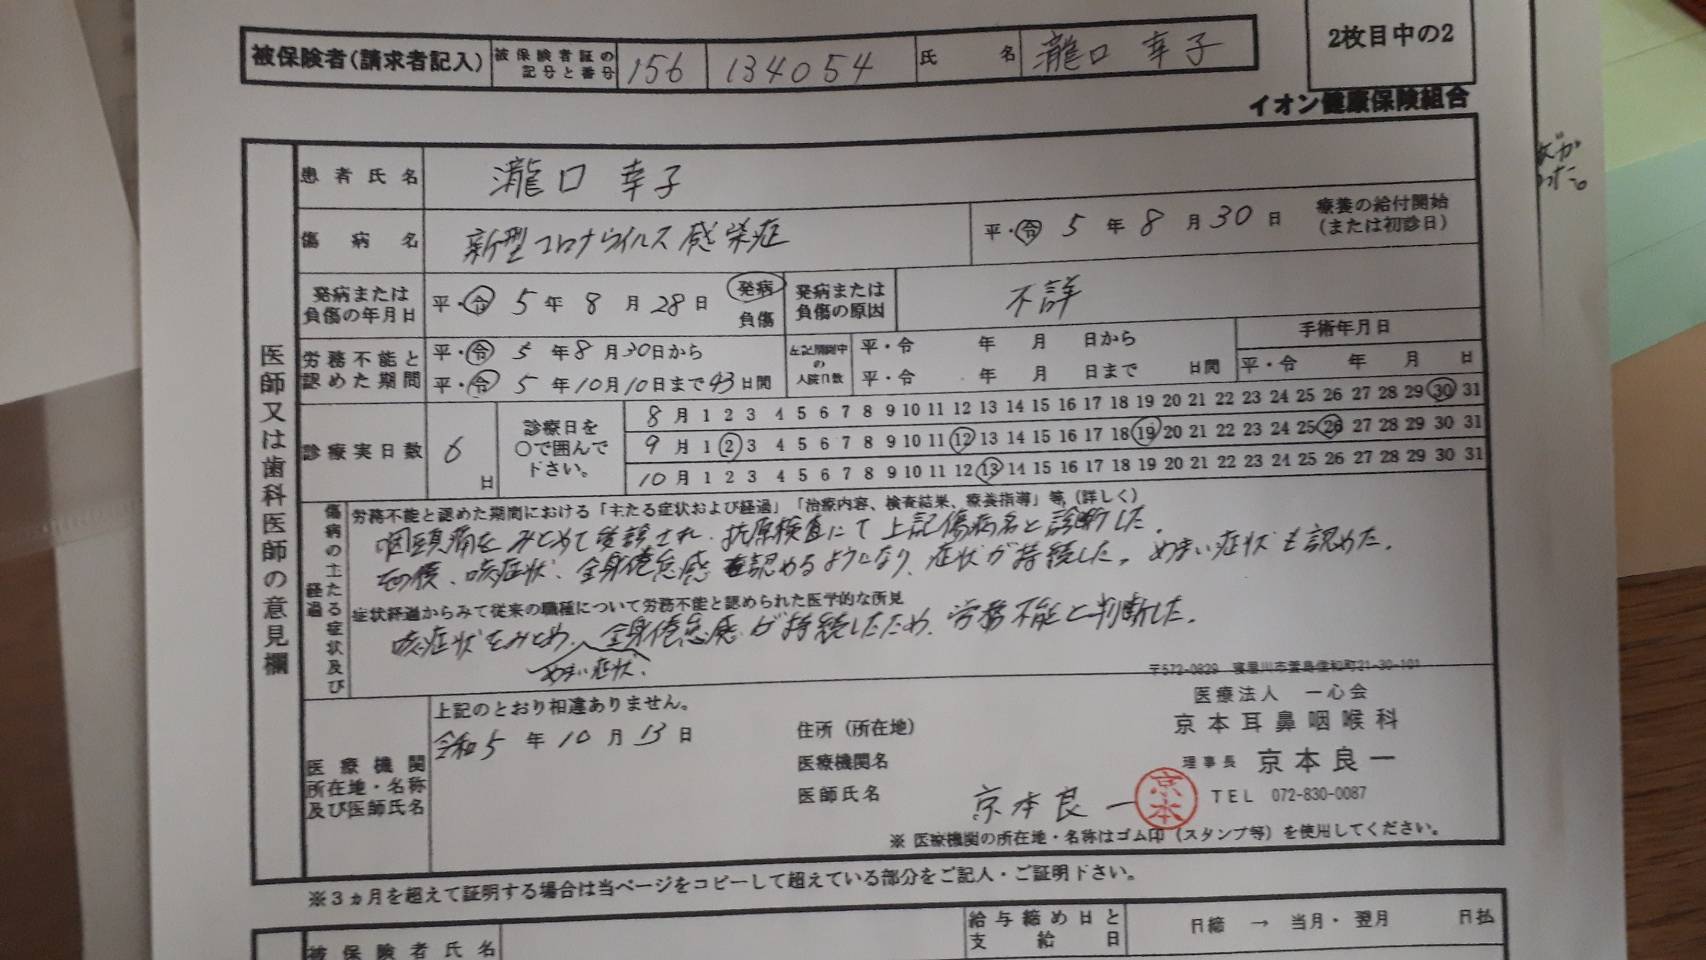 2枚目中の2
被保険者(請求者記入) 被保険者証の記号と番号 156 134054 氏名 瀧口 幸子
イオン健康保険組合
医師又は歯科医師の意見欄
患者氏名 瀧口 幸子
傷病名 新型コロナウイルス感染症 平・令 5年8月30日 療養の給付開始(または初診日)
発病または負傷の年月日 平・令 5年8月28日 発病 負傷 発病または負傷の原因 不詳
労務不能と認めた期間 平・令 5年8月30日から 左記期間中の入院日数 平・令 年 月 日から 手術年月日
平・令 5年10月10日まで43日間 平・令 年 月 日まで 日間 平・令 年 月 日
診療実日数 6日 診療日を○で囲んで下さい。
8月 1 2 3 4 5 6 7 8 9 10 11 12 13 14 15 16 17 18 19 20 21 22 23 24 25 26 27 28 29 30 31
9月 1 2 3 4 5 6 7 8 9 10 11 12 13 14 15 16 17 18 19 20 21 22 23 24 25 26 27 28 29 30 31
10月 1 2 3 4 5 6 7 8 9 10 11 12 13 14 15 16 17 18 19 20 21 22 23 24 25 26 27 28 29 30 31
傷病の主たる症状及び経過
労務不能と認めた期間における「主たる症状および経過」「治療内容、検査結果、療養指導」等(詳しく)
咽頭痛をみとめて受診され、抗原検査にて上記傷病名と診断した。
その後、咳症状、全身倦怠感を認めるようになり、症状が持続した。めまい症状も認めた。
症状経過からみて従来の職種について労務不能と認められた医学的な所見
咳症状をみとめ、全身倦怠感が持続したため、労務不能と判断した。
めまい症状、
〒572-0829 寝屋川市萱島信和町21-30-101
上記のとおり相違ありません。 医療法人 一心会
令和5年10月13日 住所(所在地) 京本耳鼻咽喉科
医療機関所在地・名称及び医師氏名 医療機関名 理事長 京本良一
医師氏名 京本良一 京本 TEL 072-830-0087
※ 医療機関の所在地・名称はゴム印(スタンプ等)を使用してください。
※3ヵ月を超えて証明する場合は当ページをコピーして超えている部分をご記入・ご証明下さい。
被保険者氏名 給与締め日と支給日 日締 → 当月・翌月 日払